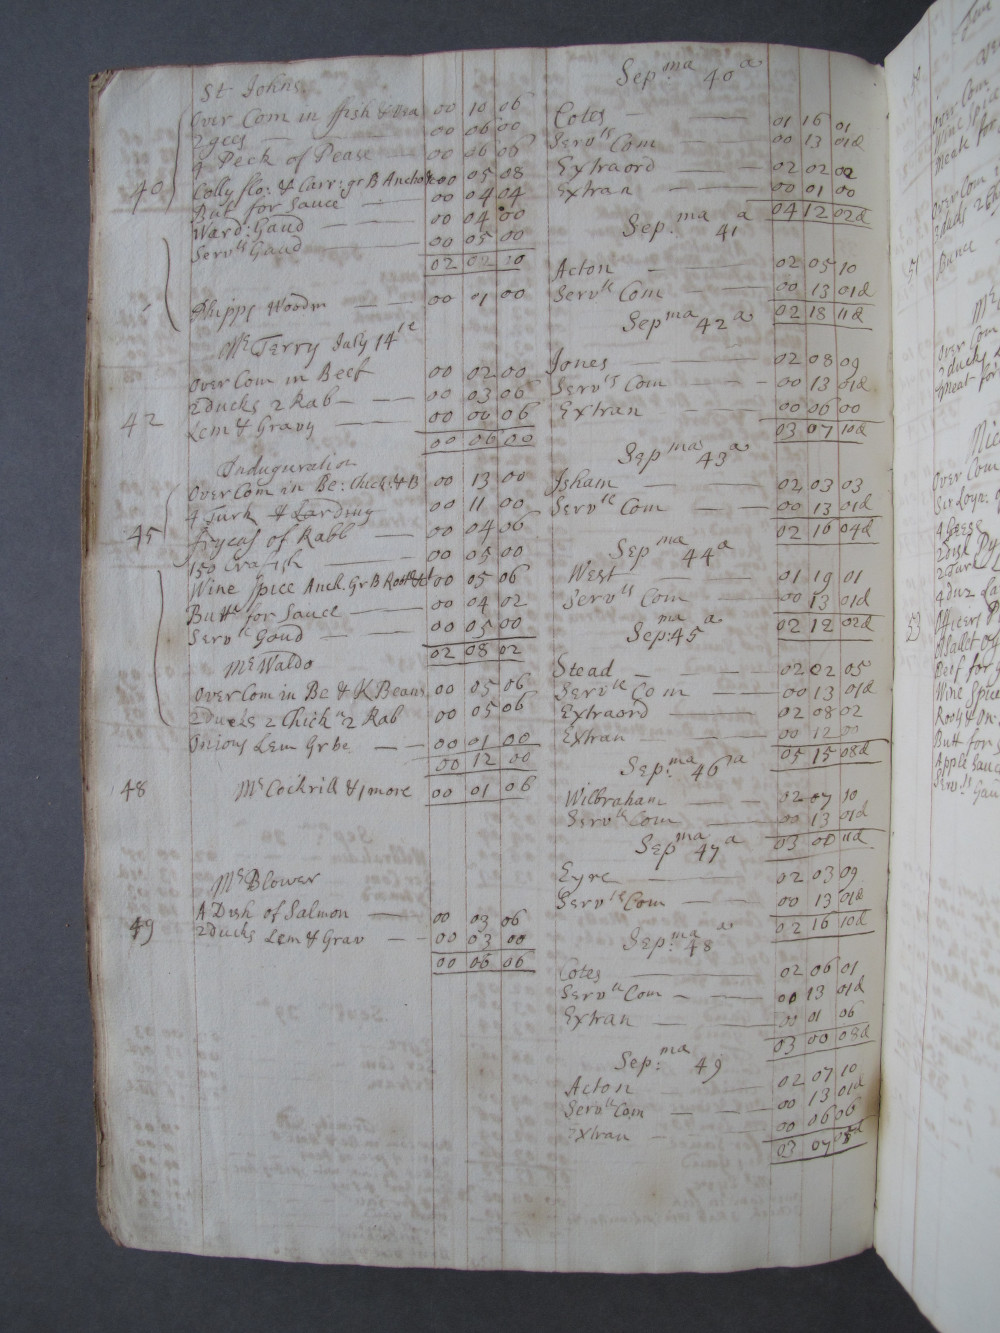 St Johns
Over Com in ffish & Vea 00 10 06
2 gees 00 06 00
4 Peck of Pease 00 06 08
40 Colly flo: & Carr: gr B Ancho 00 05 08
But for Sauce 00 04 04
Ward: Gaud 00 04 00
Servts Gaud 00 05 00
02 02 10
Phipps Woodm 00 01 00
Mr Terry July 14th
Over Com in Beef 00 02 00
2 ducks 2 Rab 00 03 06
42 Lem & Gravy 00 00 06
00 06 00
Induguration
Over Com in Be: Chick: & B 00 13 00
4 Turk & Larding 00 11 00
45 fryeas of Rabb 00 04 06
150 Crafish 00 05 00
Wine Spice Anch. Gr B Roots &c 00 05 06
Butte for Sauce 00 04 02
Servts Gaud 00 05 00
02 08 02
Mr Waldo
Over Com in Be & K Beans 00 05 06
2 Ducks 2 Chickn 2 Rab 00 05 06
Onions Lem Gr be 00 01 00
00 12 00
48 Mr Cockrill & 1 more 00 01 06
Mr Blower
A Dish of Salmon 00 03 06
49 2 Ducks Lem & Grav 00 03 00
00 06 06
Sep:ma 40a
Cotes 01 16 01
Servts Com 00 13 01d
Extraord 02 02 00
Extran 00 01 00
04 12 02d
Sep:ma 41a
Acton 02 05 10
Servts Com 00 13 01d
02 18 11d
Sepma 42a
Jones 02 08 09
Servts Com 00 13 01d
Extran 00 06 00
03 07 10d
Sepma 43a
Isham 02 03 03
Servts Com 00 13 01d
02 16 04d
Sepma 44a
West 01 19 01
Servts Com 00 13 01d
02 12 02d
Sep:ma 45a
Stead 02 02 05
Servts Com 00 13 01d
Extraord 02 08 02
Extran 00 12 00
05 15 08d
Sep:ma 46a
Wilbraham 02 07 10
Servts Com 00 13 01d
03 00 11d
Sepma 47a
Eyre 02 03 09
Servts Com 00 13 01d
02 16 10d
Sep:ma 48a
Cotes 02 06 01
Servts Com 00 13 01d
Extran 00 01 06
03 00 08d
Sep:ma 49
Acton 02 07 10
Servts Com 00 13 01d
Extran 00 06 06
03 07 05d
Over Com
Wine Spic
Meate for
Over Com
51
Over Com
2 ducks
Meat for
Over Com
4 Geese
53
Beef for
Wine Spic
Butt for
Apple Sauc
Servts Gau